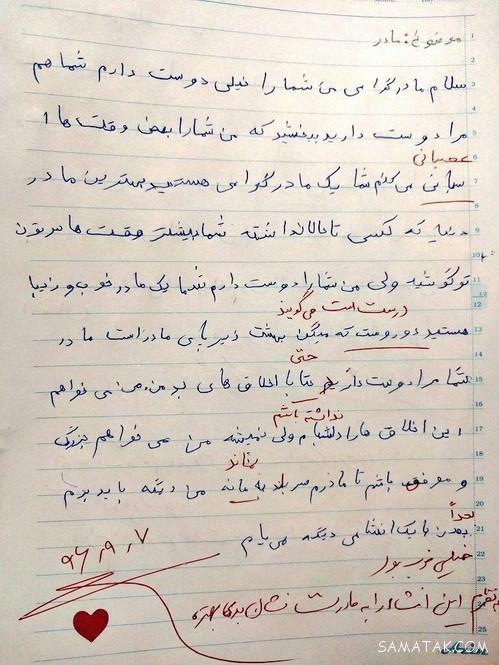 موضوع: مادر
سلام مادر گرامی من شما را خیلی دوست دارم شما هم
مرا دوست دارید ببخشید که من شما را بعضی وقت ها
عصبانی
می کنم شما یک مادر گرامی هستید بهترین مادر
دنیا که کسی تا حالا نداشته شما بیشتر وقت ها سرتون
تو گوشیه ولی من شما را دوست دارم شما یک مادر خوب و زیبا
درست است می گویند
هستید که میگن بهشت زیر پای مادر است مادر
حتی
شما مرا دوست دارید با اخلاق های بد من من می خواهم
نداشته باشم
این اخلاق ها را ولی نمیشه من می خواهم بزرگ
بماند
و موفق باشم تا مادرم سربلند به مانه من دیگه باید برم
بعداً
بعدن با یک انشا دیگه می یام
خیلی خوب بود
۹۶,۹,۷
این انشاء را به مادرت نشان بده
SAMATAK.COM